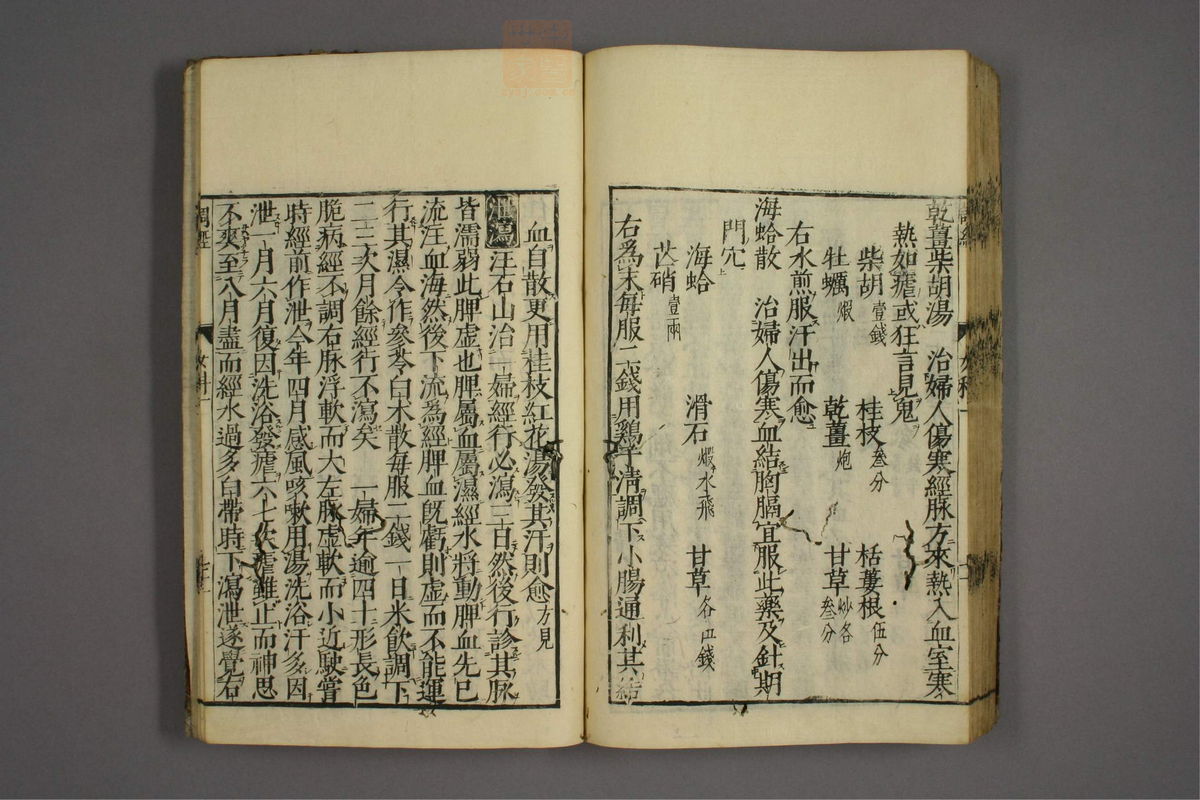 乾薑柴胡湯　治婦人傷寒經脉方來熱入血室寒
熱如瘧或狂言見鬼
柴胡壹錢　桂枝叁分　栝蔞根伍分
牡蠣煅　乾薑炮　甘草炒各叁分
右水煎服汗出而愈
海蛤散　治婦人傷寒血結胸膈宜服此藥及針期
門穴
海蛤　滑石煅水飛　甘草各四錢
芒硝壹兩
右爲末每服二錢用鷄子清調下小腸通利其結
血自散更用桂枝紅花湯發其汗則愈方見
泄瀉　汪石山治一婦經行必瀉三日然後行診其脉
皆濡弱此脾虛也脾屬血屬濕經水將動脾血先已
流注血海然後下流爲經脾血旣虧則虛而不能運
行其濕令作參苓白术散每服二錢一日米飲調下
二三次月餘經行不瀉矣　一婦年逾四十形長色
脆病經不調右脉浮軟而大左脉虛軟而小近駛嘗
時經前作泄今年四月感風咳嗽用湯洗浴汗多因
泄一月六月復因洗浴發瘧六七次瘧雖止而神思
不爽至八月盡而經水過多白帶時下瀉泄遂覺右
調經
女科一